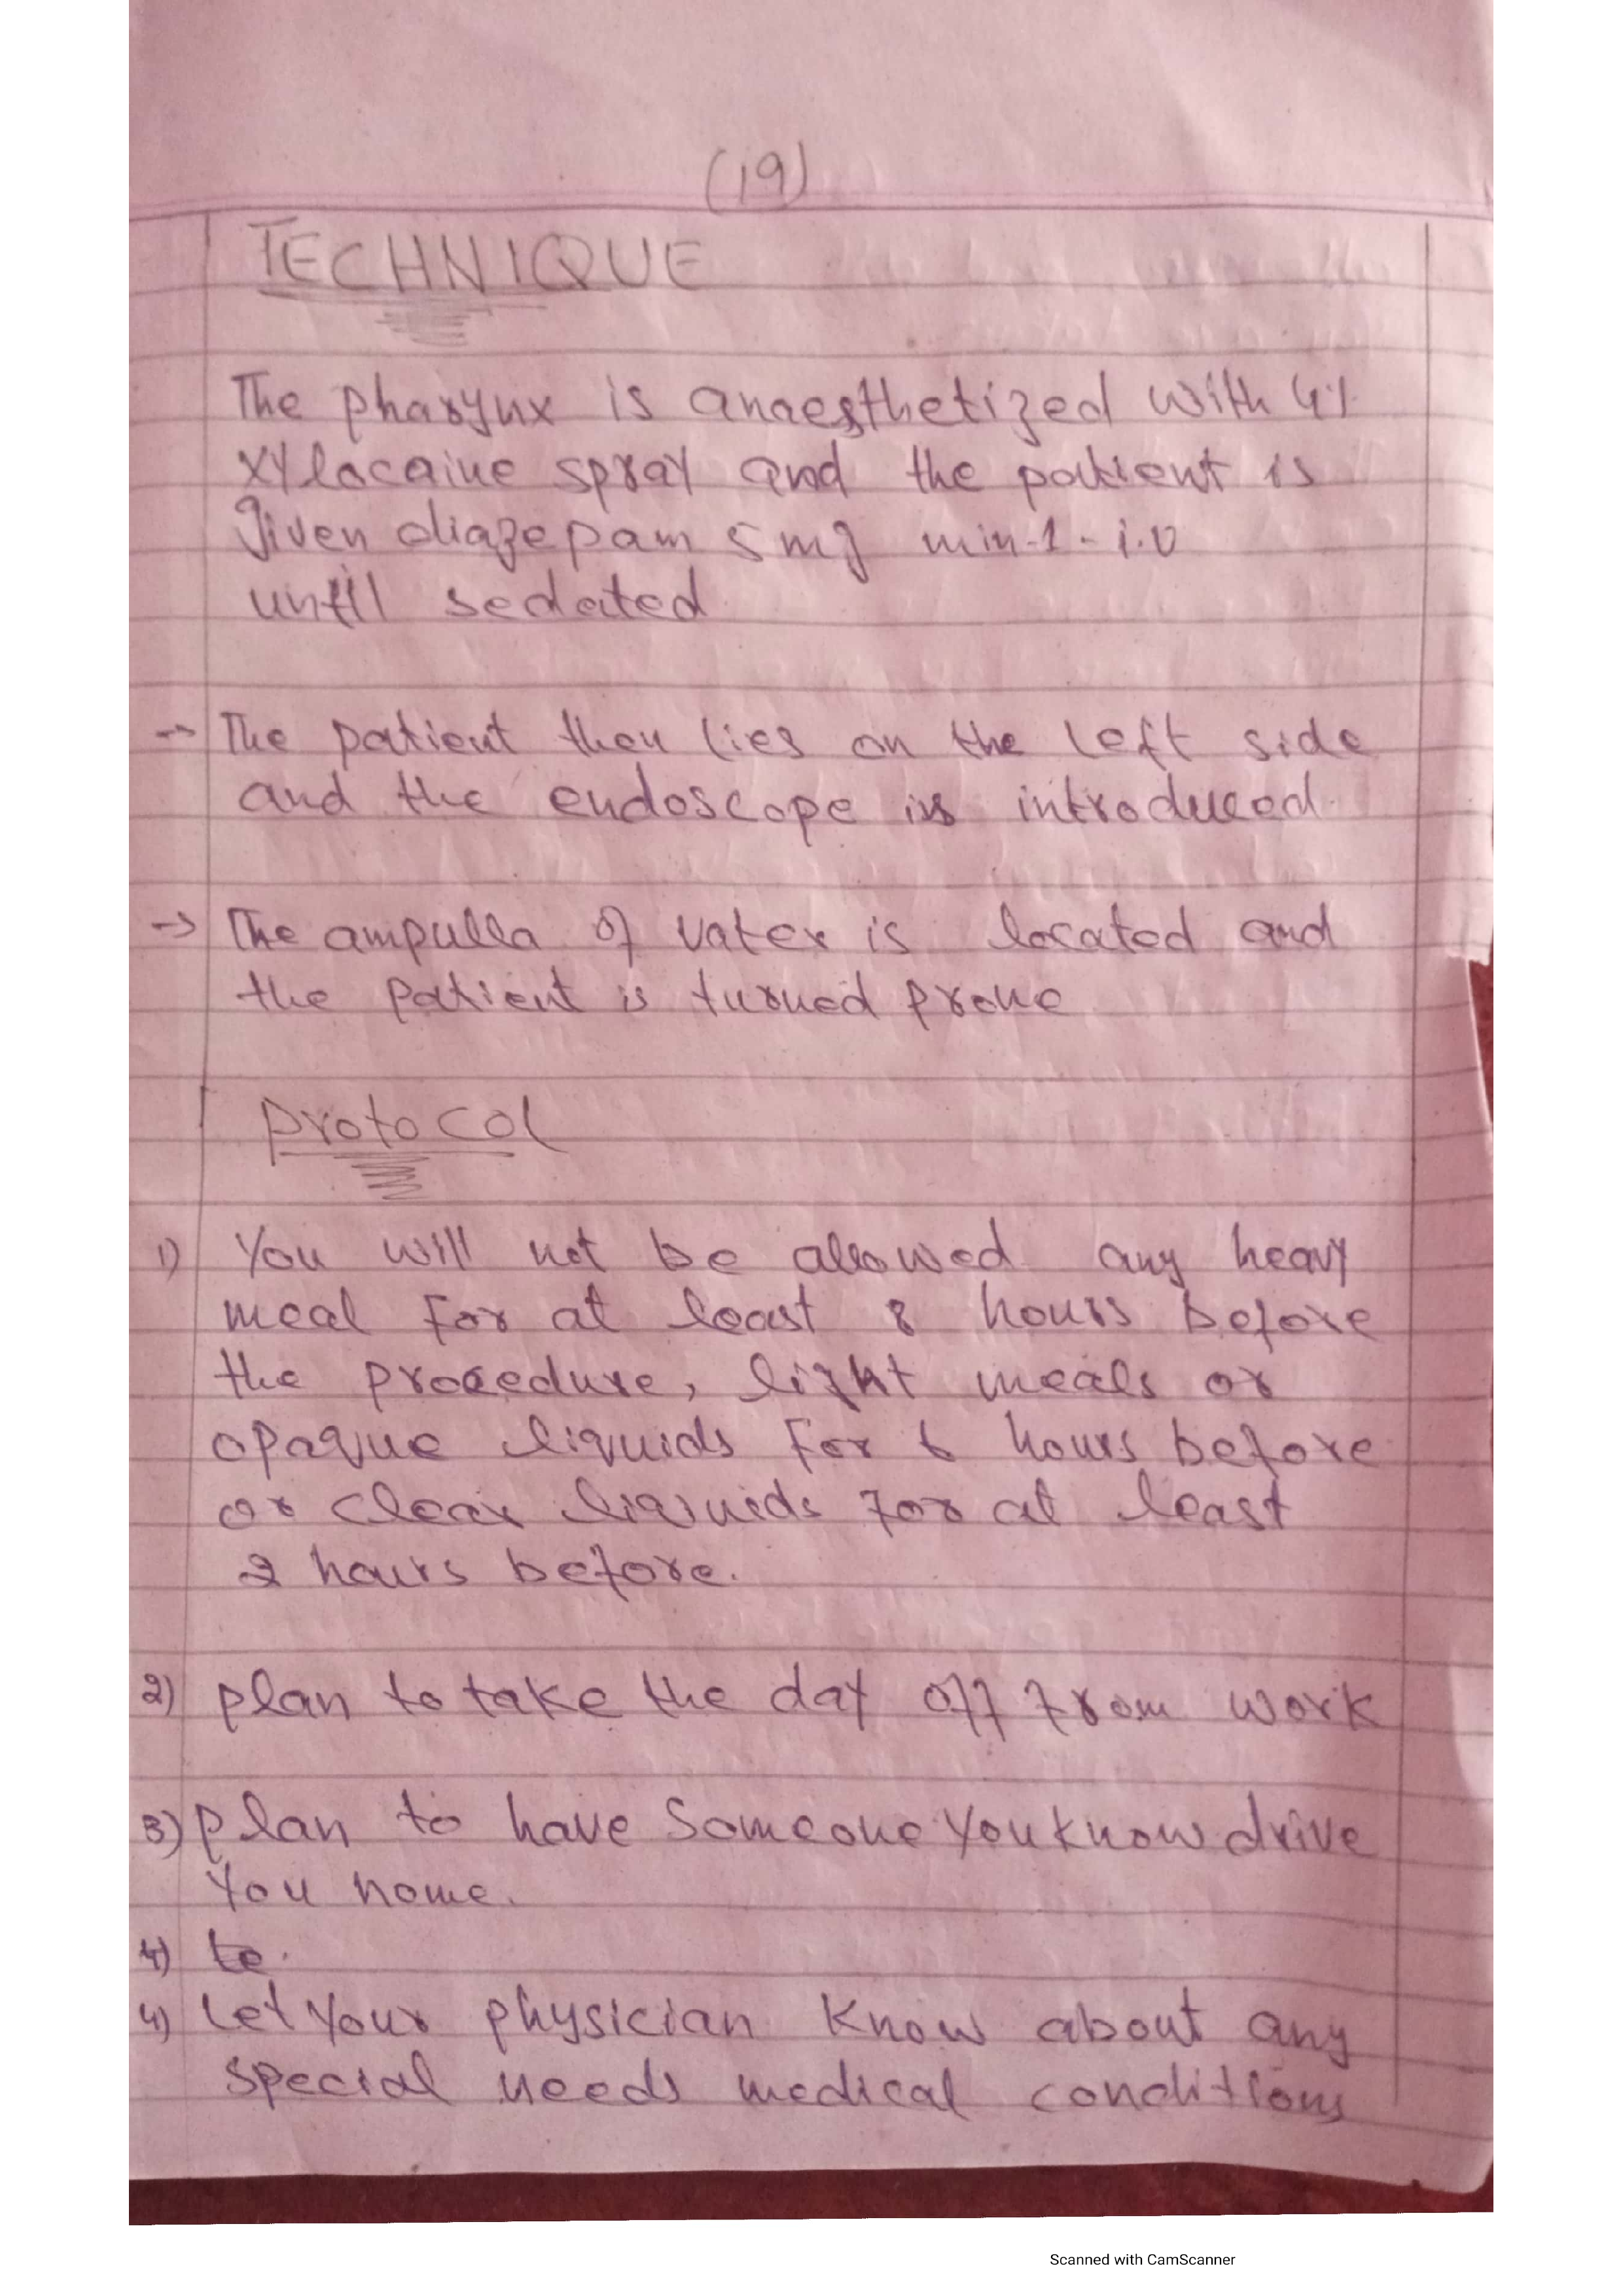 (19)
TECHNIQUE
The pharynx is anaesthetized with 4%
xylocaine spray and the patient is
given diazepam 5 mg min-1 - i.v
until sedated
→ The patient then lies on the left side
and the endoscope is introduced.
→ The ampulla of vater is located and
the patient is turned prone
Protocol
1) You will not be allowed any heavy
meal for at least 8 hours before
the procedure, light meals or
opaque liquids for 6 hours before
or clear liquids for at least
2 hours before.
2) plan to take the day off from work
3) plan to have someone you know drive
you home.
4) te.
4) Let your physician know about any
special needs medical conditions
Scanned with CamScanner